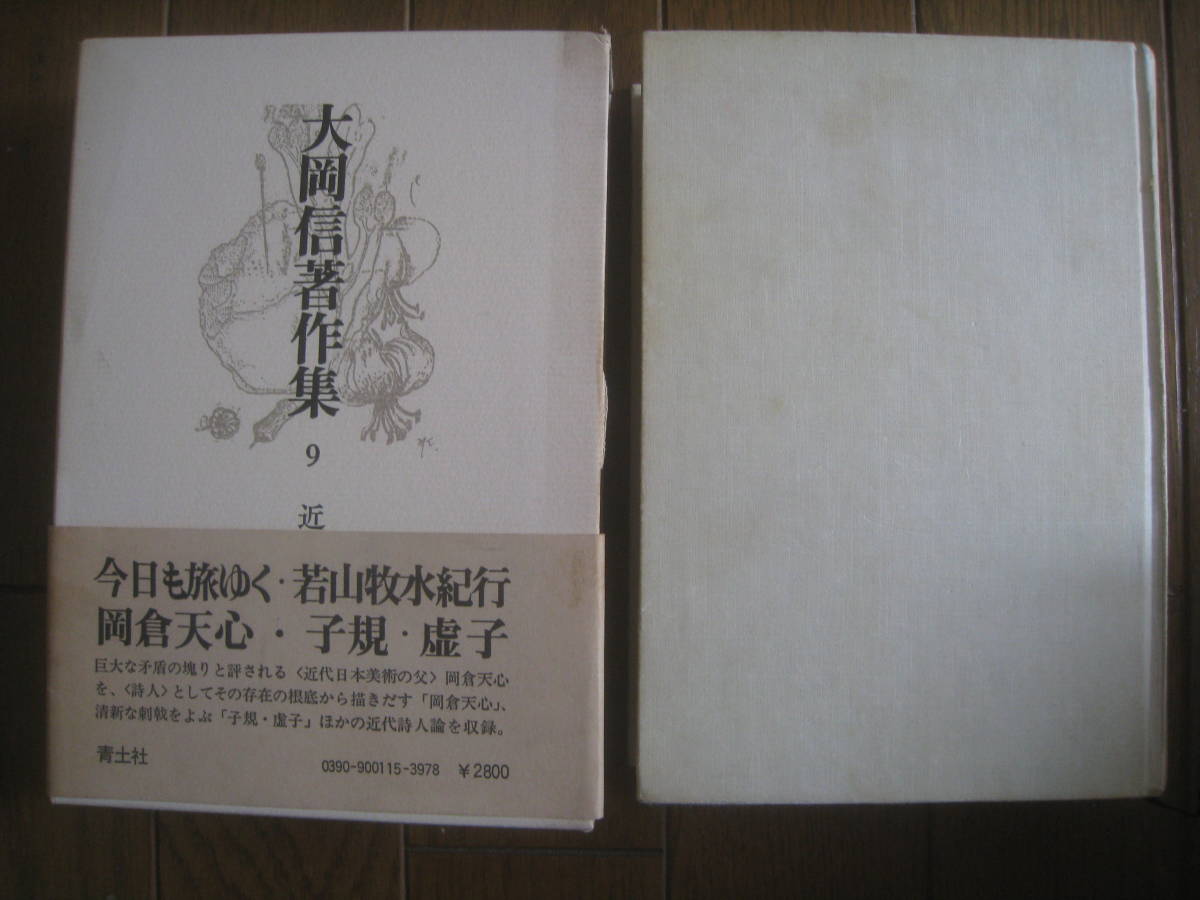 大岡信著作集
9
近
今日も旅ゆく・若山牧水紀行
岡倉天心・子規・虚子
巨大な矛盾の塊りと評される〈近代日本美術の父〉岡倉天心
を、〈詩人〉としてその存在の根底から描きだす「岡倉天心」、
清新な刺戟をよぶ「子規・虚子」ほかの近代詩人論を収録。
青土社
0390-900115-3978 ¥2800